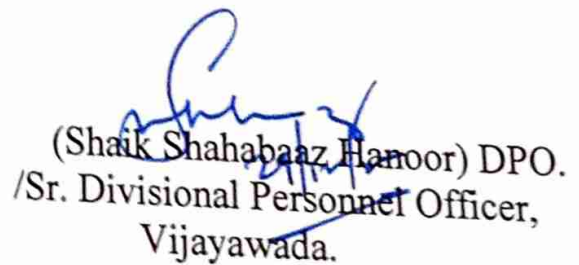 (Shaik Shahabaaz Hanoor) DPO.
/Sr. Divisional Personnel Officer,
Vijayawada.